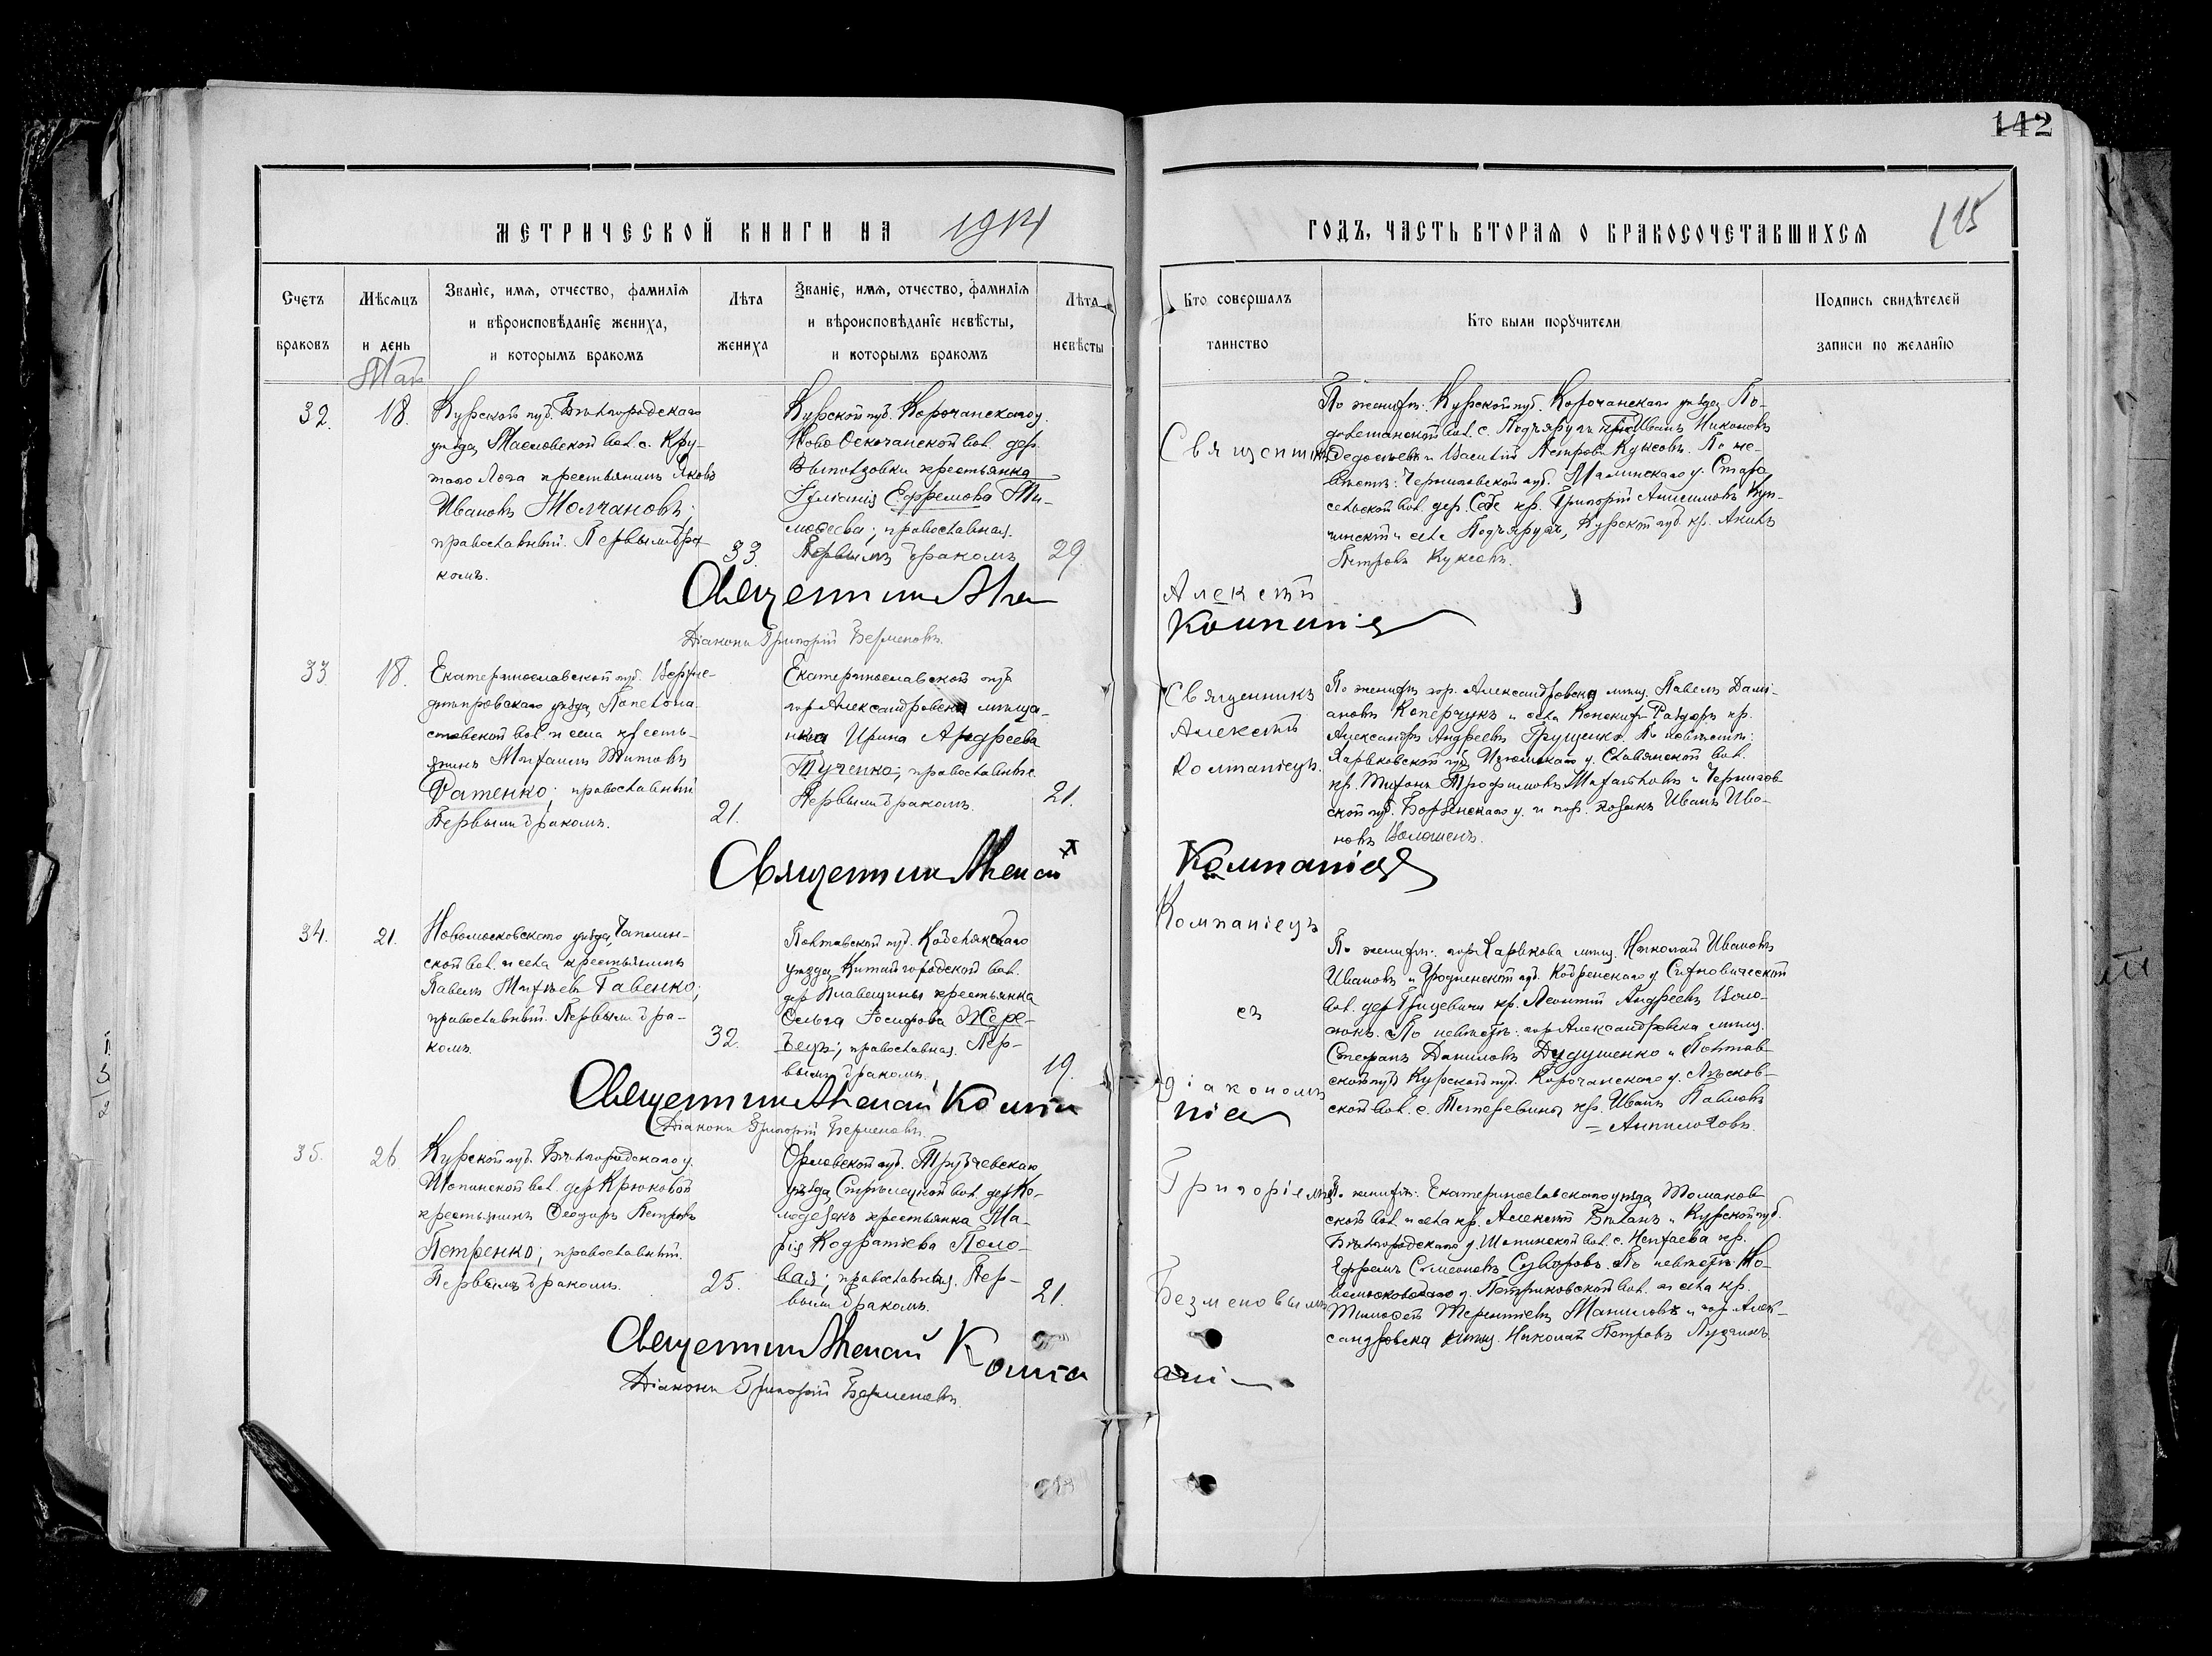 142
МЕТРИЧЕСКОЙ КНИГИ НА 1914
ГОДЪ, ЧАСТЬ ВТОРАЯ О БРАКОСОЧЕТАВШИХСЯ
115
Счетъ браковъ
Мѣсяцъ и день
Званіе, имя, отчество, фамилія
и вѣроисповѣданіе жениха,
и которымъ бракомъ
Лѣта жениха
Званіе, имя, отчество, фамилія
и вѣроисповѣданіе невѣсты,
и которымъ бракомъ
Лѣта невѣсты
Кто совершалъ таинство
Кто были поручители
Подпись свидѣтелей
записи по желанію
Май
32.
18.
Курской губ. Бѣлгородскаго
уѣзда, Масловской вол. с. Кру-
того Лога крестьянинъ Яковъ
Ивановъ Молчановъ;
православный. Первымъ бра-
комъ.
33.
Курской губ. Корочанскаго у.
Ново Оскочанской вол. дер.
крестьянка
Іуліанія Ефремова Ти-
моѳеева; православная.
Первымъ бракомъ
29.
Священникъ
Алексѣй
По женихѣ: Курской губ. Корочанскаго уѣзда, По-
вол. с. Подъяруги кр. Иванъ Никоновъ
и Василій Петровъ Куксовъ. По не-
вѣстѣ: Черниговской губ. Мглинскаго у. Старо
сельской вол. дер. кр. Григорій Анисимовъ Куп-
чинскій и села Подъяругъ, Курской губ. кр. Акимъ
Петровъ Куксовъ.
Священникъ Але
Компаніе
Діаконъ Григорій Безменовъ.
33
18.
Екатеринославской губ. Верхне-
днѣпровскаго уѣзда, Попельна-
стовской вол. и села кресть-
янинъ Михаилъ Титовъ
Фатенко; православный
Первымъ бракомъ.
21.
Екатеринославской губ
гор Александровска мѣща-
нка Ирина Андреева
Тученко; православные.
Первымъ бракомъ.
21.
Священникъ
Алексѣй
Компаніецъ.
По женихѣ гор. Александровска мѣщ. Павелъ Даміа-
ановъ Коперчукъ и села Конскихъ Раздоръ кр.
Александръ Андреевъ Грущенко. По невѣстѣ:
Харьковской губ. Изюмскаго у. Славянской вол.
кр. Тихонъ Трофимовъ и Чернигов-
ской губ. Борзенскаго у. и гор. козакъ Иванъ Ива-
новъ Волошенъ.
Священникъ Алексѣй
Компаніе
34.
21.
Новомосковскаго уѣзда, Чаплин-
ской вол. и села крестьянинъ
Павелъ Михѣевъ Гавенко;
православный. Первымъ бра-
комъ.
32.
Полтавской губ. Кобелякскаго
уѣзда, Китайгородской вол.
дер Плавещины крестьянка
Ольга Іосифова Жере-
бецъ; православная. Пер-
вымъ бракомъ.
19.
Компаніецъ
съ
діакономъ
По женихѣ: гор Харькова мѣщ. Николай Ивановъ
Ивановъ и Гродненской губ. Кобринскаго у Сихновичской
вол. дер Грицевичи кр. Леонтій Андреевъ Воло-
сюкъ. По невѣстѣ: гор Александровска мѣщ.
Стефанъ Даниловъ Дудушенко и Полтав-
ской губ Курской губ. Корочанскаго у. Лѣсков-
ской вол. с. Тетеревина кр. Иванъ Павловъ
= Анпилоговъ.
Священникъ Алексѣй Компа
ніе
Діаконъ Григорій Безменовъ.
35.
26
Курской губ. Бѣлгородскаго у.
Шопинской вол. дер Крюковой
крестьянинъ Ѳеодоръ Петровъ
Петренко; православный.
Первымъ бракомъ.
25.
Орловской губ. Трубчевскаго
уѣзда, Стрѣлецкой вол. дер Ко-
лодезокъ крестьянка Ма-
рія Кодратіева Поло-
вая; православная. Пер-
вымъ бракомъ.
21.
Григоріемъ
Безменовымъ
По женихѣ: Екатеринославскаго уѣзда, Томаков-
ской вол. и села кр. Алексѣй Бѣланъ и Курской губ.
Бѣлгородскаго у. Шопинской вол. с. Нехаева кр.
Ефремъ Симеоновъ Суворовъ. По невѣстѣ: Но-
вомосковскаго у. Петриковской вол. и села кр.
Тимоѳей Терентіевъ Маниловъ и гор Алек-
сандровска мѣщ. Николай Петровъ
Священникъ Алексѣй Компа
ані
Діаконъ Григорій Безменовъ.